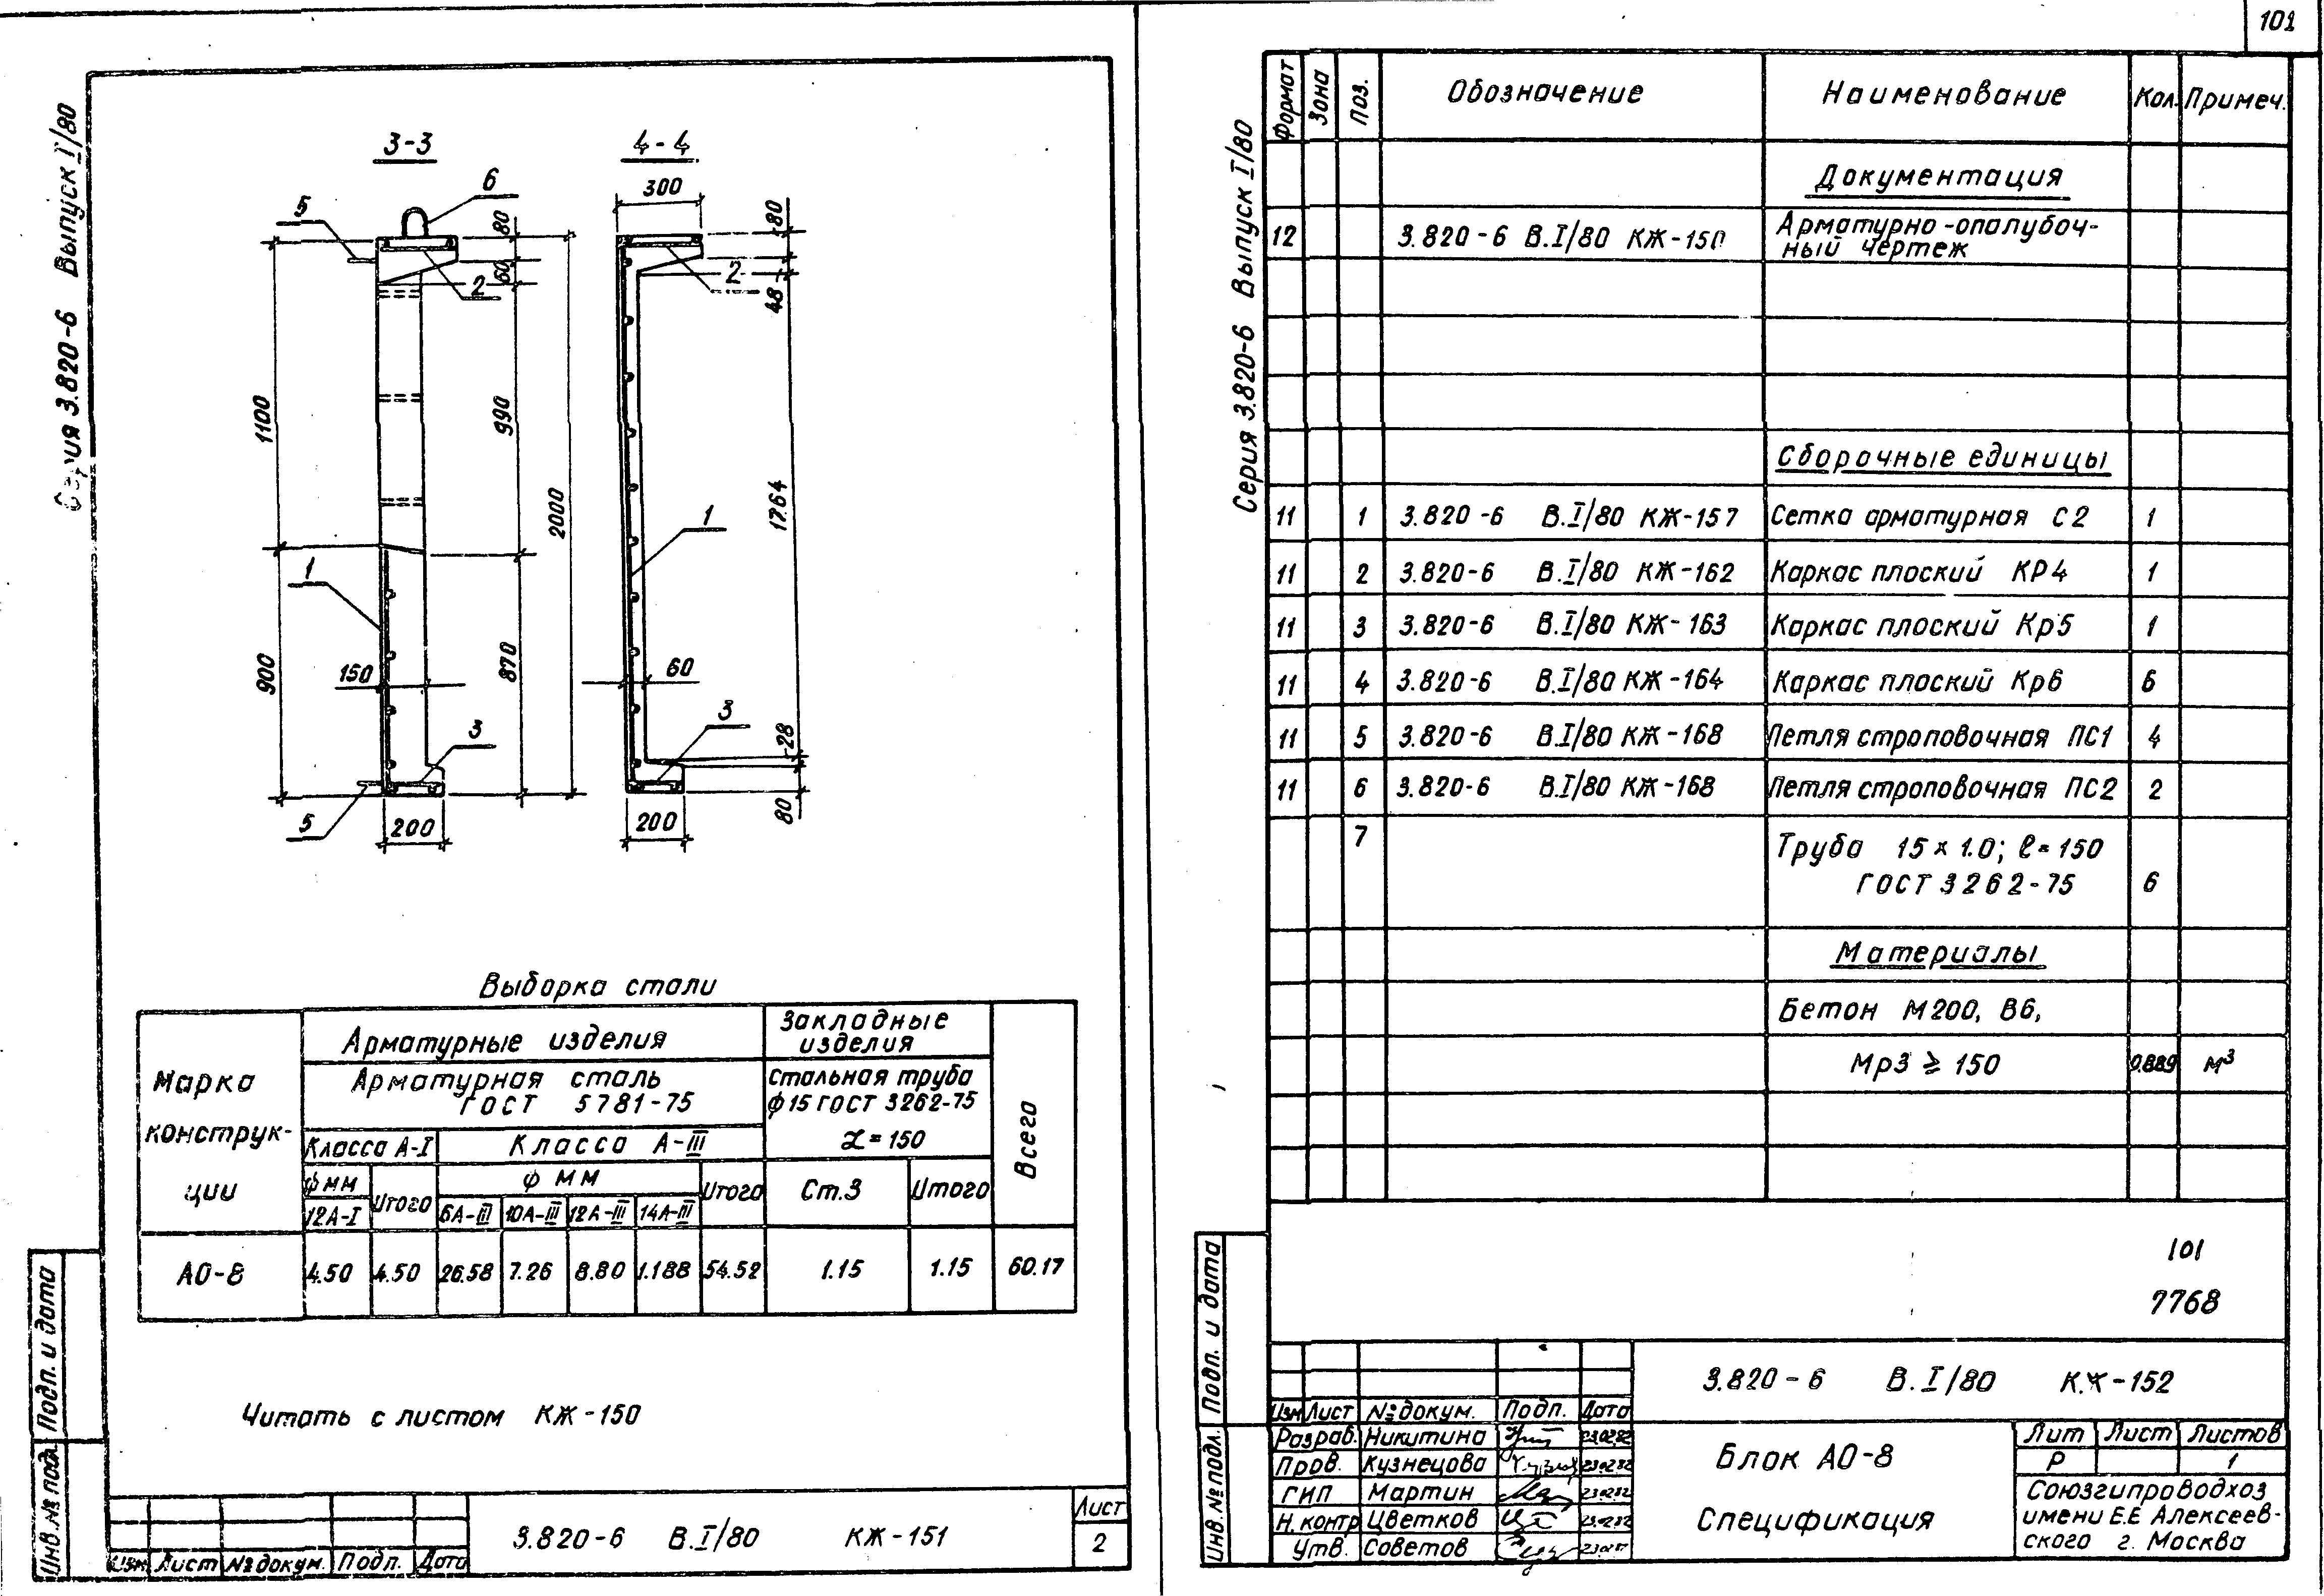 Серия 3.820-6 Выпуск I/80
3-3
4-4
6
5
80
60
2
1100
990
2000
1
900
870
150
3
5
200
300
80
2
48
1764
1
60
3
28
80
200
Выборка стали
Марка
конструк-
ции
Арматурные изделия
Закладные
изделия
Всего
Арматурная сталь
ГОСТ 5781-75
Стальная труба
ф15 ГОСТ 3262-75
L=150
Класса А-I
Класса А-III
ф мм
Итого
ф мм
Итого
Ст.3
Итого
12А-I
6А-III 10А-III 12А-III 14А-III
АО-8 4.50 4.50 26.58 7.26 8.80 1.188 54.52 1.15 1.15 60.17
Читать с листом КЖ-150
Подп. и дата
Инв.№ подл.
Изм Лист № докум. Подп. Дата
3.820-6 В.I/80 КЖ-151
Лист
2
101
Серия 3.820-6 Выпуск I/80
Формат Зона Поз. Обозначение Наименование Кол. Примеч.
Документация
12 3.820-6 В.I/80 КЖ-150 Арматурно-опалубоч-
ный чертеж
Сборочные единицы
11 1 3.820-6 В.I/80 КЖ-157 Сетка арматурная С2 1
11 2 3.820-6 В.I/80 КЖ-162 Каркас плоский КР4 1
11 3 3.820-6 В.I/80 КЖ-163 Каркас плоский Кр5 1
11 4 3.820-6 В.I/80 КЖ-164 Каркас плоский Кр6 6
11 5 3.820-6 В.I/80 КЖ-168 Петля строповочная ПС1 4
11 6 3.820-6 В.I/80 КЖ-168 Петля строповочная ПС2 2
7 Труба 15 х 1.0; ℓ=150
ГОСТ 3262-75 6
Материалы
Бетон М200, В6,
Мрз ≥ 150 0.889 м³
101
7768
Подп. и дата
Инв.№ подл.
3.820-6 В.I/80 КЖ-152
Изм Лист № докум. Подп. Дата
Разраб. Никитина 23.02.82
Пров. Кузнецова 23.02.82
ГИП Мартин 23.02.82
Н.контр Цветков 23.02.82
Утв. Советов
Блок АО-8
Спецификация
Лит Лист Листов
Р 1
Союзгипроводхоз
имени Е.Е Алексеев-
ского г. Москва